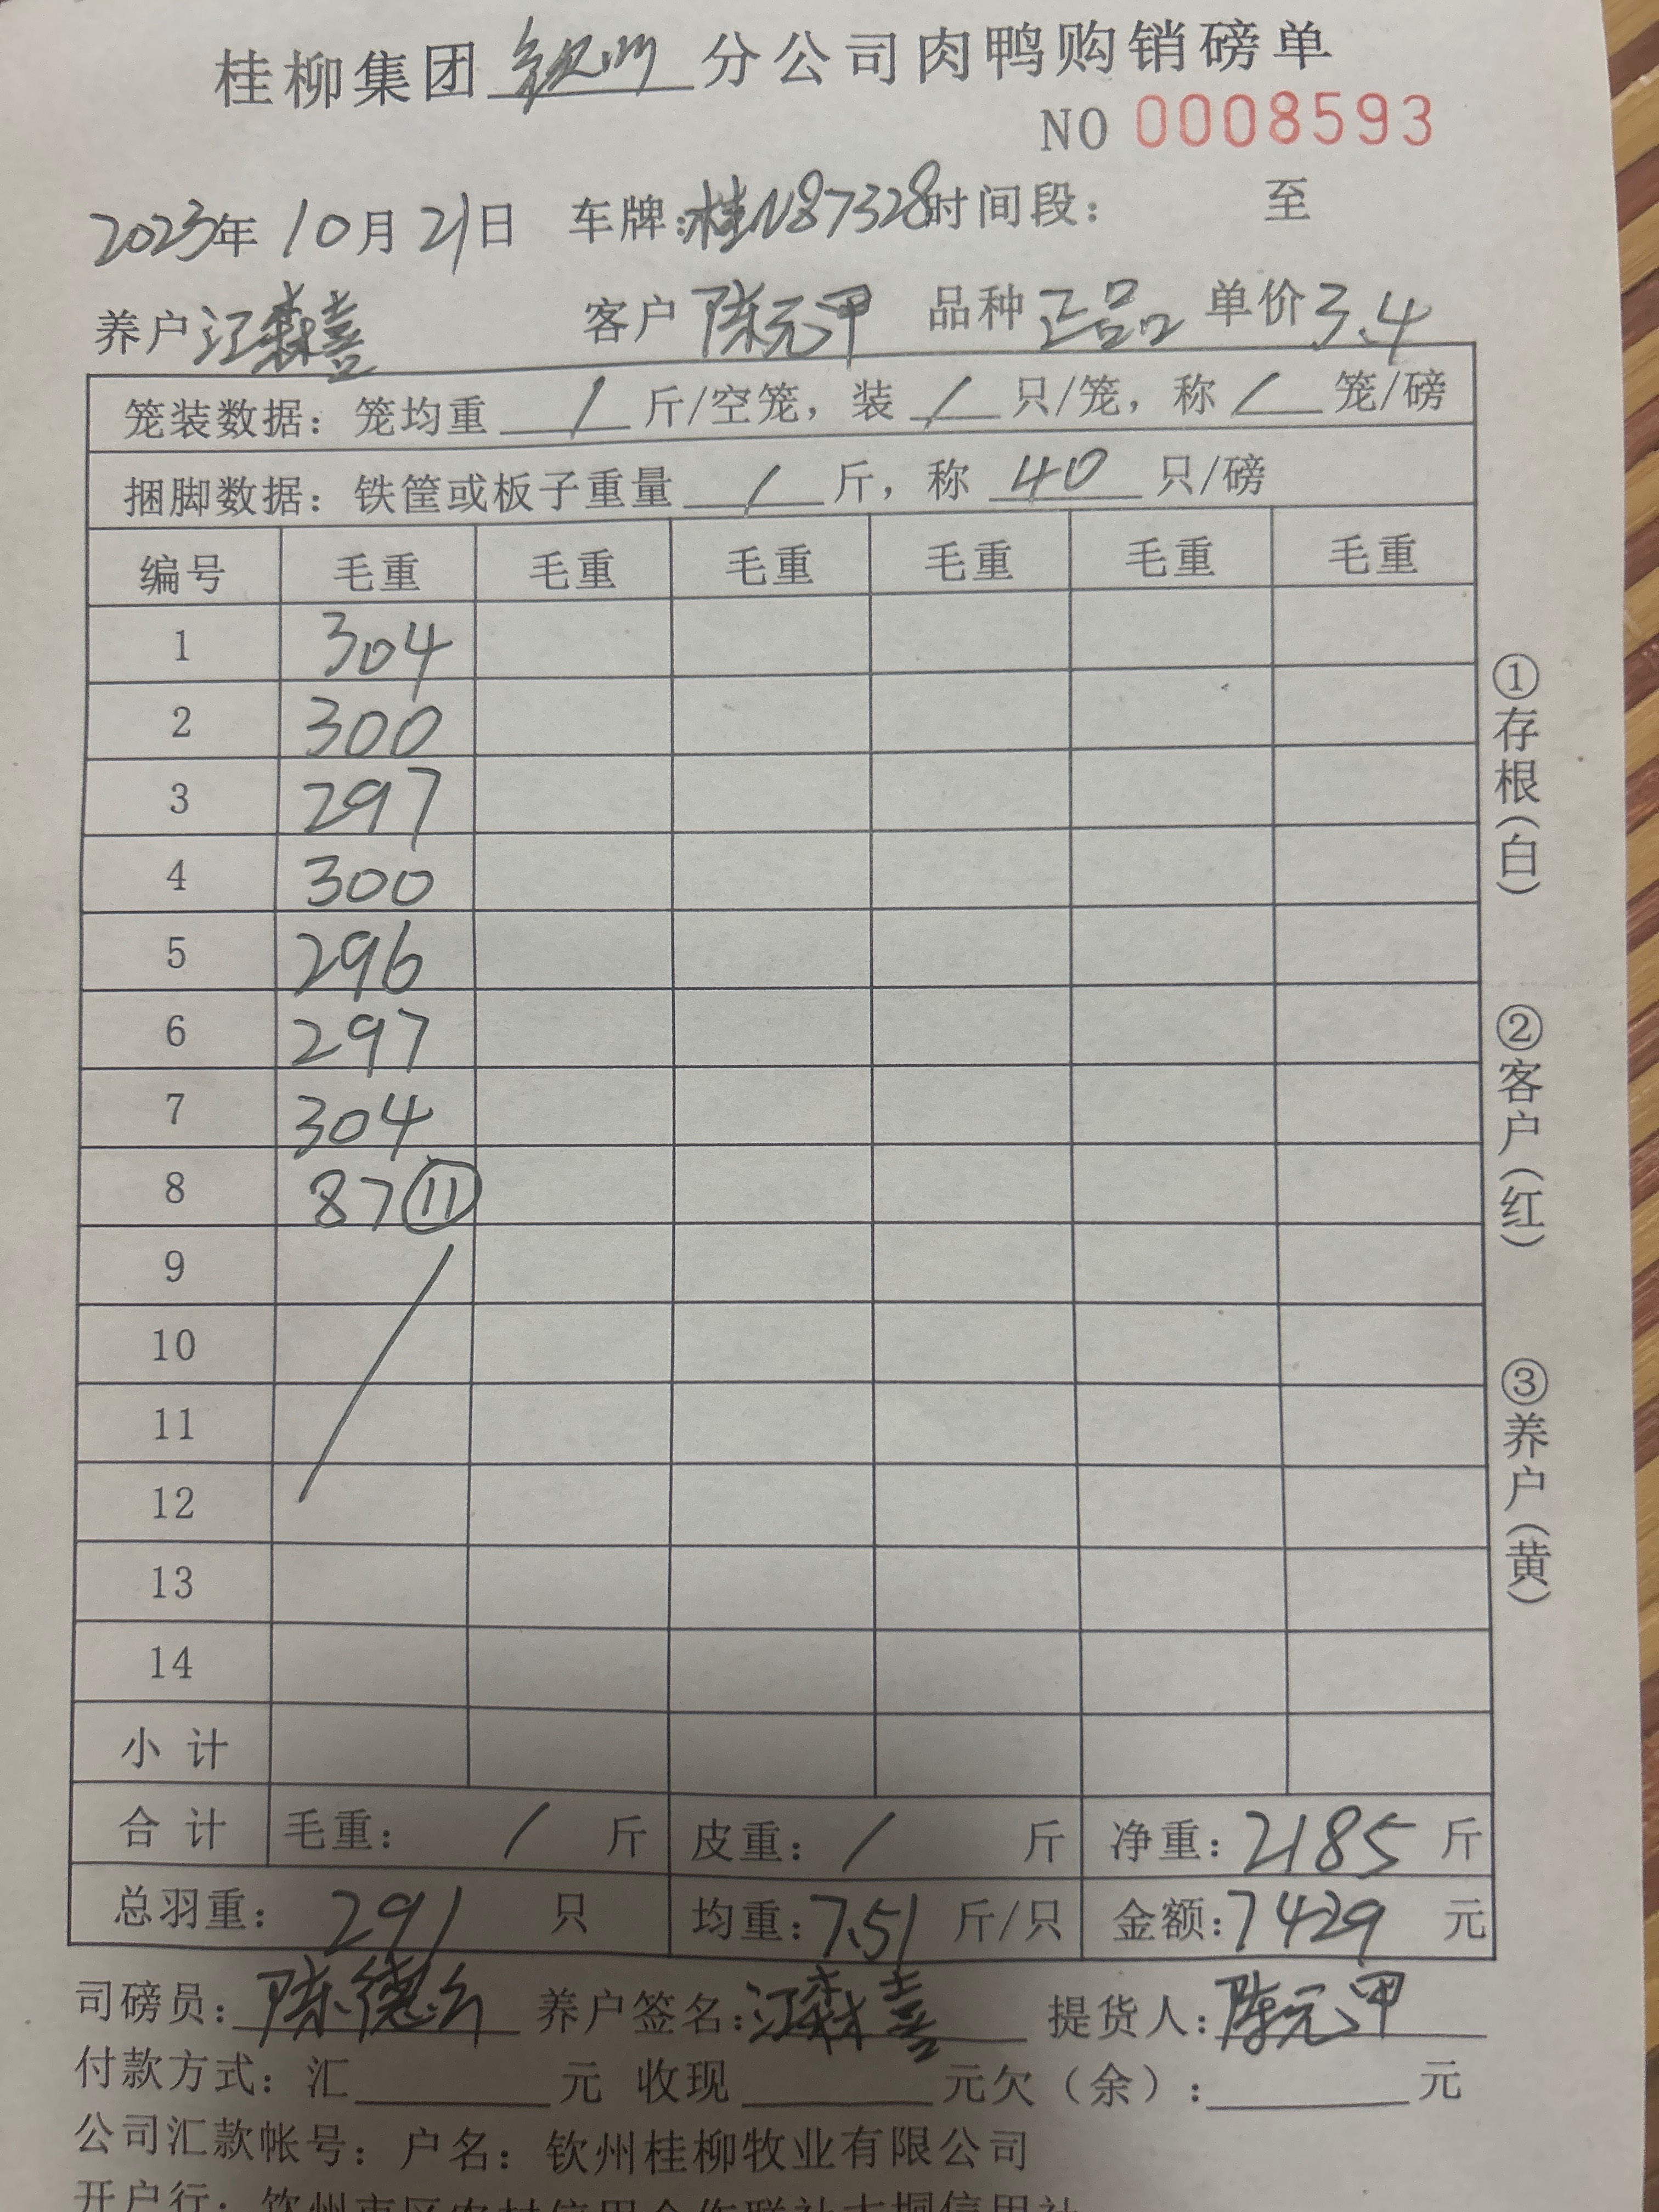 桂柳集团钦州分公司肉鸭购销磅单
NO 0008593
2023年10月21日 车牌:桂N87328时间段: 至
养户江森喜 客户陈元甲 品种正品 单价3.4
笼装数据: 笼均重 / 斤/空笼, 装 / 只/笼, 称 / 笼/磅
捆脚数据: 铁筐或板子重量 / 斤, 称 40 只/磅
编号 毛重 毛重 毛重 毛重 毛重 毛重
1 304
2 300
3 297
4 300
5 296
6 297
7 304
8 87 ⑪
9
10
11
12
13
14
小计
合计 毛重: / 斤 皮重: / 斤 净重: 2185 斤
总羽重: 291 只 均重: 7.51 斤/只 金额: 7429 元
司磅员: 陈德 养户签名: 江森喜 提货人: 陈元甲
付款方式: 汇 元 收现 元欠(余): 元
公司汇款帐号: 户名: 钦州桂柳牧业有限公司
开户行: 钦州市区农村信用合作联社大垌信用社
①存根(白)
②客户(红)
③养户(黄)